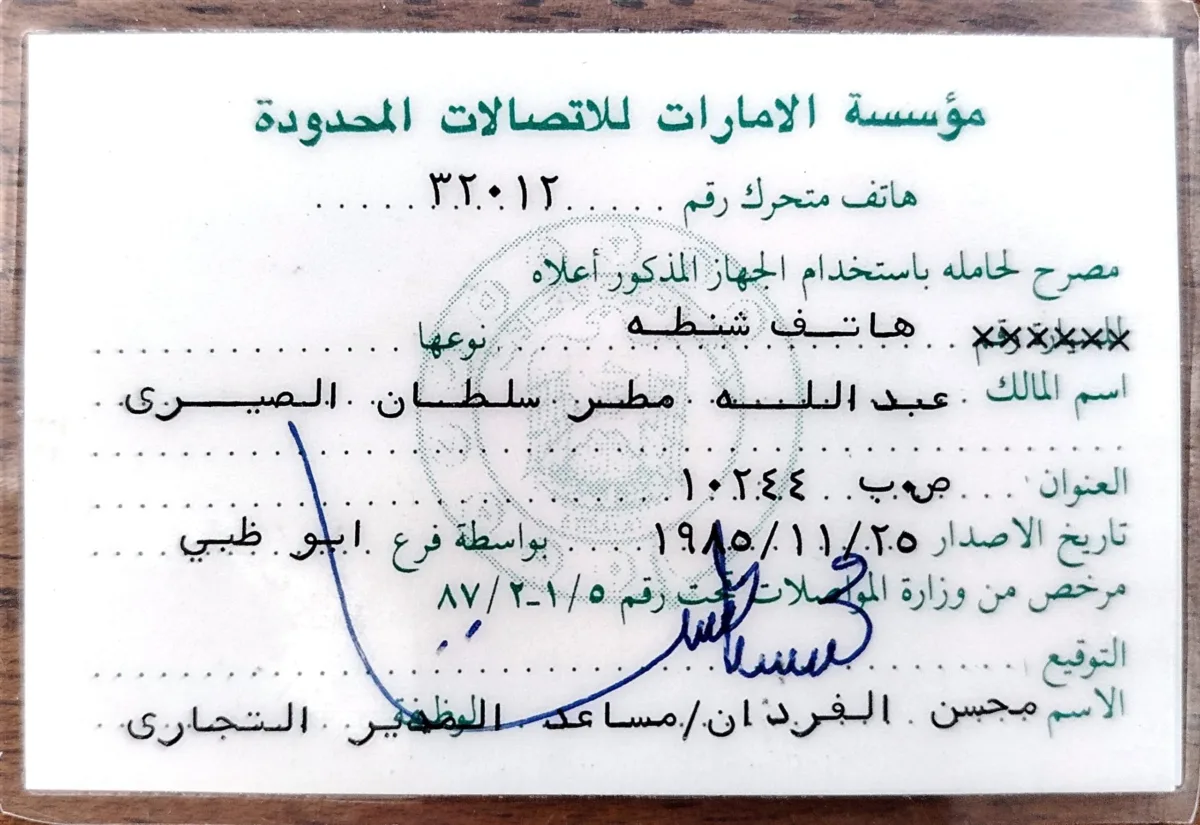 مؤسسة الامارات للاتصالات المحدودة
هاتف متحرك رقم ٣٢٠١٢
مصرح لحامله باستخدام الجهاز المذكور أعلاه
للسيارة رقم هاتف شنطه نوعها
اسم المالك عبدالله مطر سلطان الصيرى
العنوان ص٠ب ١٠٢٤٤
تاريخ الاصدار ١٩٨٥/١١/٢٥ بواسطة فرع ابو ظبي
مرخص من وزارة المواصلات تحت رقم ٥/١-٢/٨٧
التوقيع
الاسم محسن الفردان/مساعد الوظيفة المدير التجارى